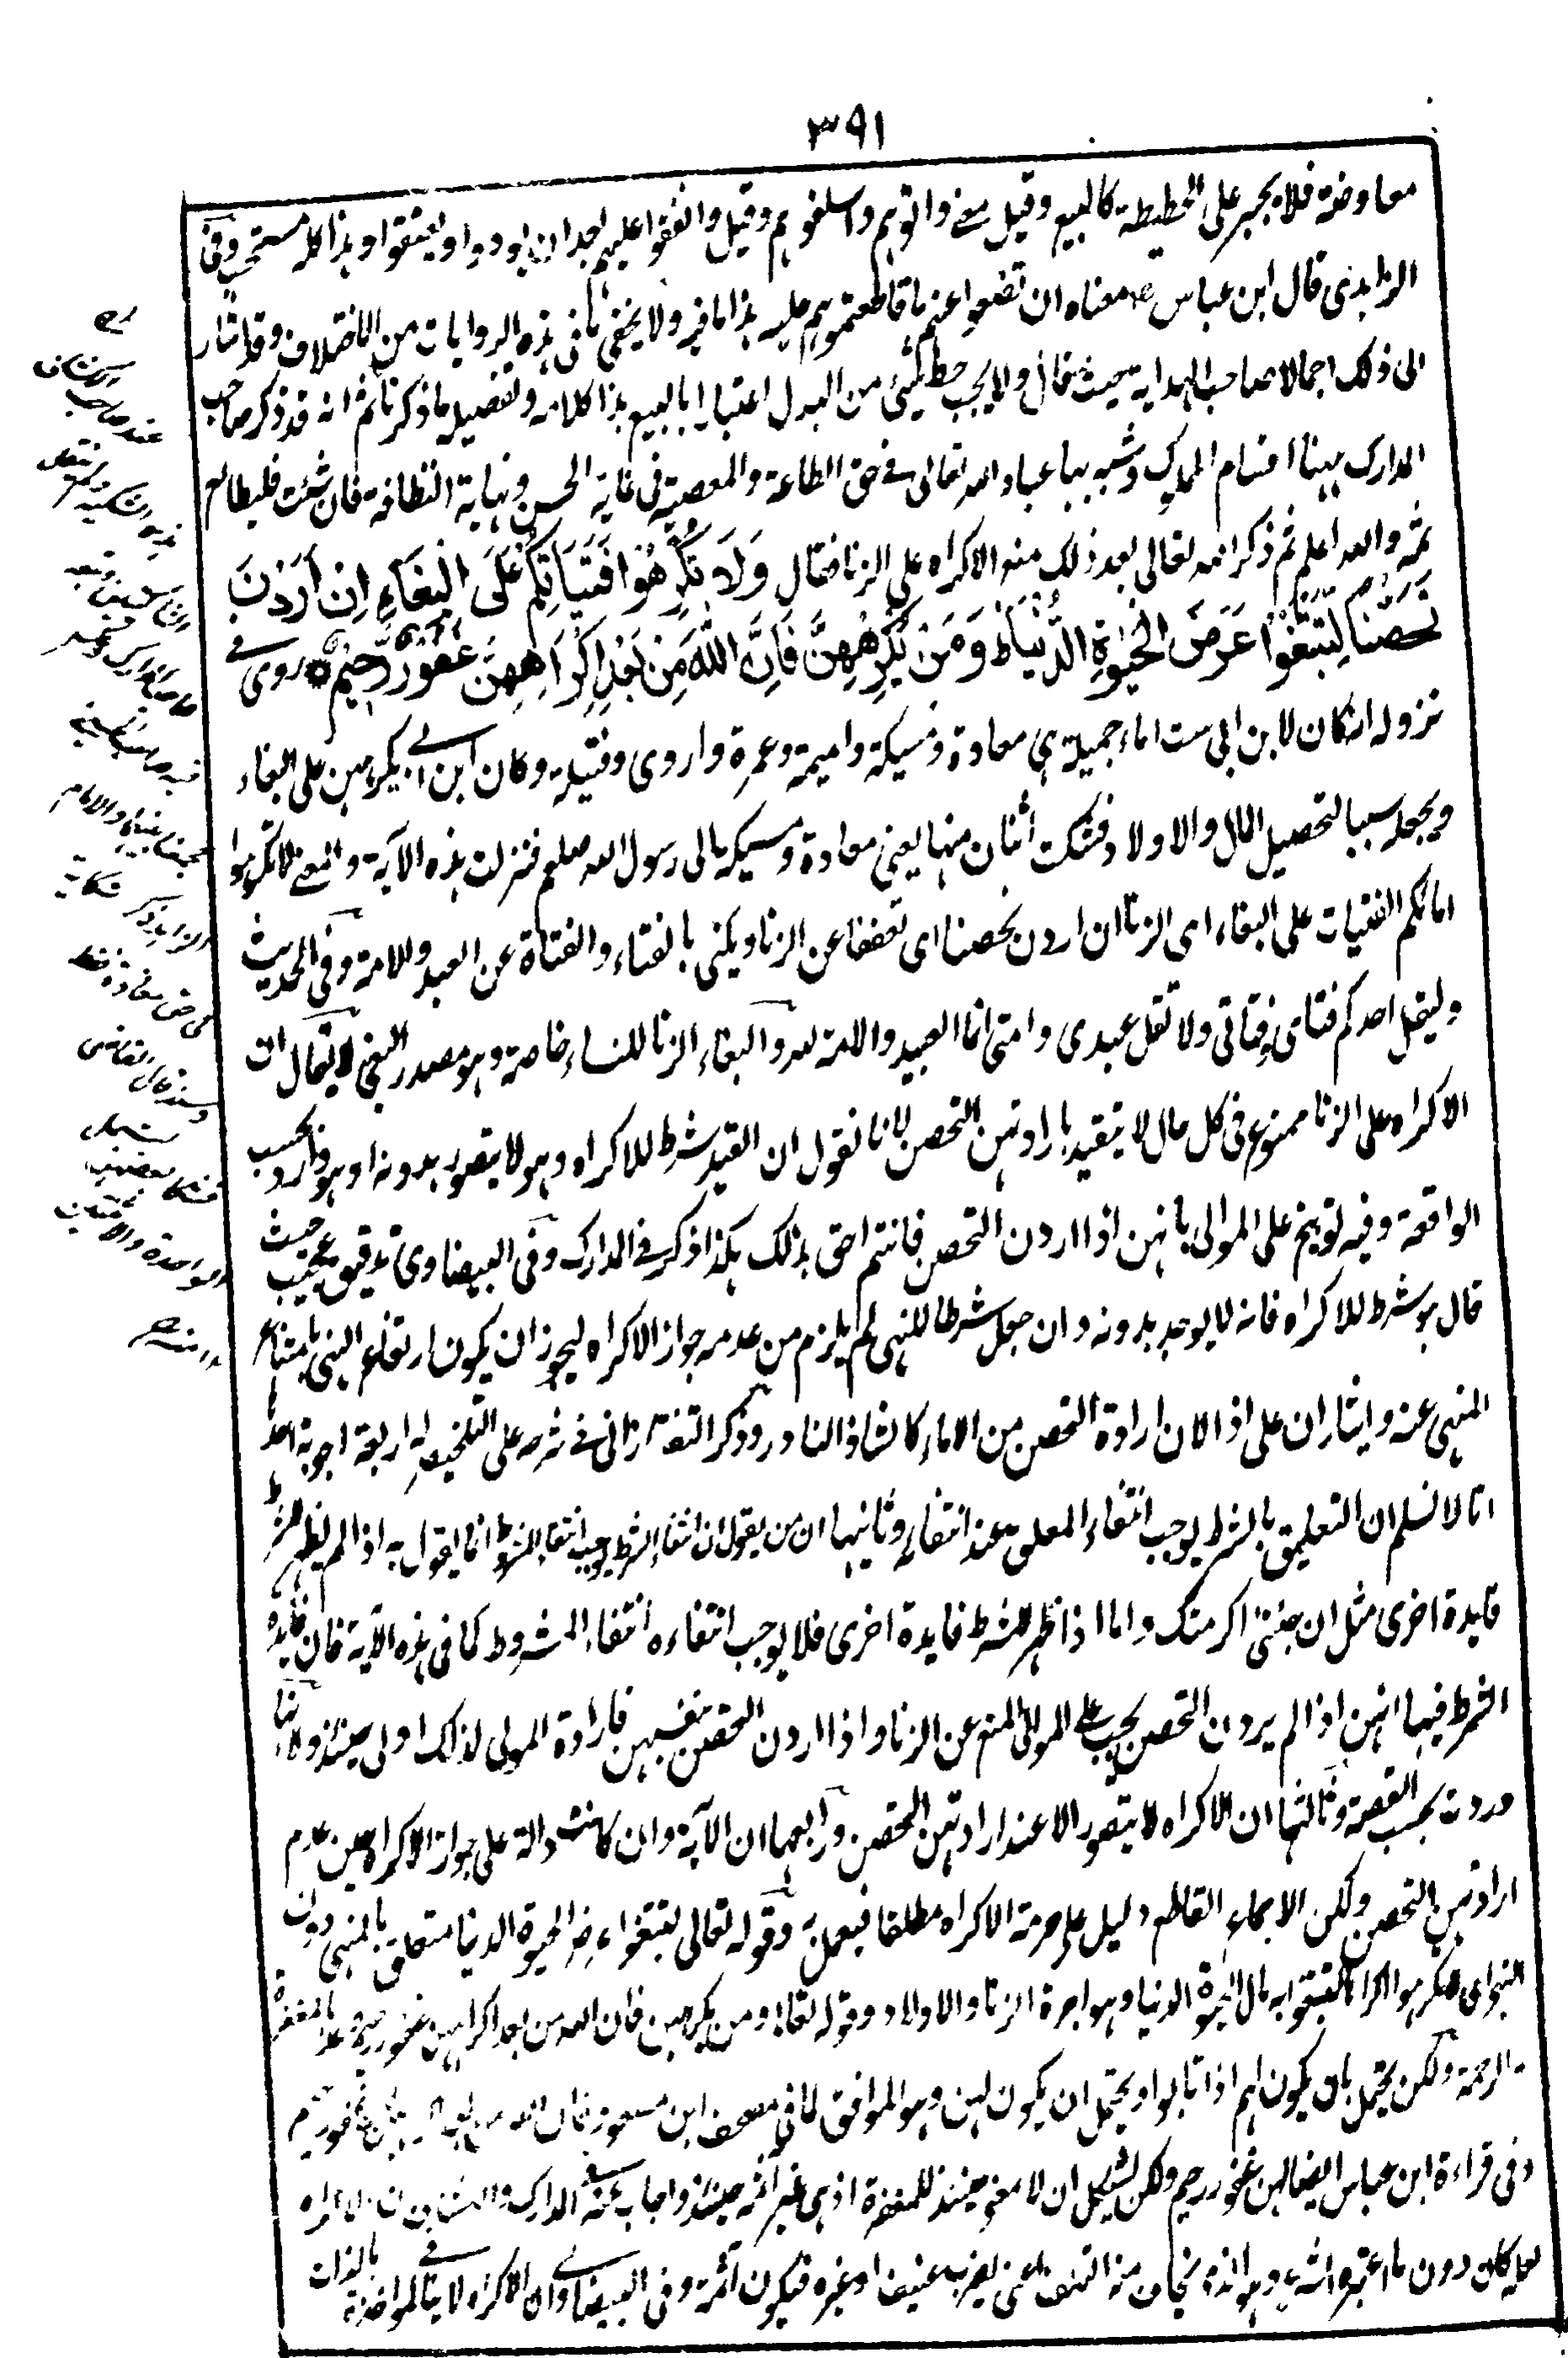 ٣٩١
معاوضة فلا يجبر على الحطيطة كالبيع وقيل معنى واتوهم واسلفوهم وقيل وانفقوا عليهم بعد ان يودوا ويعتقوا وهذا كله مستحب وفى
الزاهدى قال ابن عباس رض معناه ان تضعوا عنهم ما قاطعتموهم عليه هذا ما فيه ولا يخفى ما فى هذه الروايات من الاختلاف وقد اشار
الى ذلك اجمالا صاحب الهداية حيث قال ولا يجب حط شئ من البدل اعتبارا بالبيع هذا كلامه وتفصيله ما ذكرنا ثم انه قد ذكر صاحب
المدارك ههنا اقسام المماليك وشبه بها عباد الله تعالى فى حق الطاعة والمعصية فى غاية الحسن ونهاية النظافة فان شئت فليطالع
ثمه والله اعلم ثم ذكر الله تعالى بعد ذلك منع الاكراه على الزنا فقال وَلَا تُكْرِهُوْا فَتَيَاتِكُمْ عَلَى الْبِغَاءِ اِنْ اَرَدْنَ
تَحَصُّنًا لِّتَبْتَغُوْا عَرَضَ الْحَيٰوةِ الدُّنْيَا ط وَمَنْ يُّكْرِهْهُنَّ فَاِنَّ اللّٰهَ مِنْ بَعْدِ اِكْرَاهِهِنَّ غَفُوْرٌ رَّحِيْمٌ روى فى
نزوله انه كان لابن ابى ست اماء جميلة هى معاذة ومسيكة واميمة وعمرة واروى وقتيلة وكان ابن ابى يكرههن على البغاء
ويجعله سببا لتحصيل المال والاولاد فشكت اثنان منها يعنى معاذة ومسيكة الى رسول الله صلعم فنزلت هذه الآية والمعنى لا تكرهوا
امائكم الفتيات على البغاء اى الزنا ان اردن تحصنا اى تعففا عن الزنا ويكنى بالفتاء والفتاة عن العبد والامة وفى الحديث
وليقل احدكم فتاى وفتاتى ولا تقل عبدى وامتى انما العبيد والامة لله والبغاء الزنا للنساء خاصة وهو مصدر البغى لا يقال ان
الاكراه على الزنا ممنوع فى كل حال لا يتقيد بارادتهن التحصن لانا نقول ان القيد شرط للاكراه وهو لا يتصور بدونه او هو وارد بحسب
الواقعة وفيه توبيخ على الموالى بانهن اذا اردن التحصن فانتم احق بذلك هكذا ذكر فى المدارك وفى البيضاوى تدقيق عجيب حيث
قال هو شرط للاكراه فانه لا يوجد بدونه وان جعل شرطا للنهى لم يلزم من عدمه جواز الاكراه ليجوز ان يكون ارتفاع النهى بامتناع
المنهى عنه وايثار ان على اذا لان ارادة التحصن من الاماء كالشاذ النادر وذكر التفتازانى فى شرحه على التلخيص له اربعة اجوبة احدها
انا لا نسلم ان التعليق بالشرط يوجب انتفاء المعلق عند انتفائه وثانيها ان من يقول ان انتفاء الشرط يوجب انتفاء المشروط انما يقول به اذا لم يظهر للشرط
فايدة اخرى مثل ان جئتنى اكرمتك واما اذا ظهر للشرط فايدة اخرى فلا يوجب انتفاءه انتفاء المشروط كما فى هذه الآية فان فايدة
الشرط فيها انهن اذا لم يردن التحصن يجب على المولى المنع عن الزنا واذا اردن التحصن بنفسهن فارادة المولى لذلك اولى حينئذ ولانها
وردت بحسب القصة وثالثها ان الاكراه لا يتصور الا عند ارادتهن التحصن ورابعها ان الآية وان كانت دالة على جواز الاكراه حين عدم
ارادتهن التحصن ولكن الاجماع القاطع دليل على حرمة الاكراه مطلقا فيعمل به وقوله تعالى لتبتغوا عرض الحيوة الدنيا متعلق بالمنهى دون
النهى اى لا تكرهوا اكراها لتبتغوا به مال الحيوة الدنيا وهو اجرة الزنا والاولاد وقوله تعالى ومن يكرههن فان الله من بعد اكراههن غفور رحيم وعد بالمغفرة
والرحمة ولكن يحتمل بان يكون لهم اذا تابوا ويحتمل ان يكون لهن وهو الموافق لما فى مصحف ابن مسعود فان الله من بعد اكراههن لهن غفور رحيم
وفى قراءة ابن عباس ايضا لهن غفور رحيم ولكن يشكل ان لا معنى حينئذ للمغفرة اذ هى غير آثمة حينئذ واجاب عنه فى المدارك والكشاف بان الاكراه
لعله كان دون ما اعتبره الشرع وهو الذى يخاف منه التلف اعنى بضرب عنيف او غيره فيكون آثمة وفى البيضاوى ان الاكراه لا ينافى المواخذة بالذات